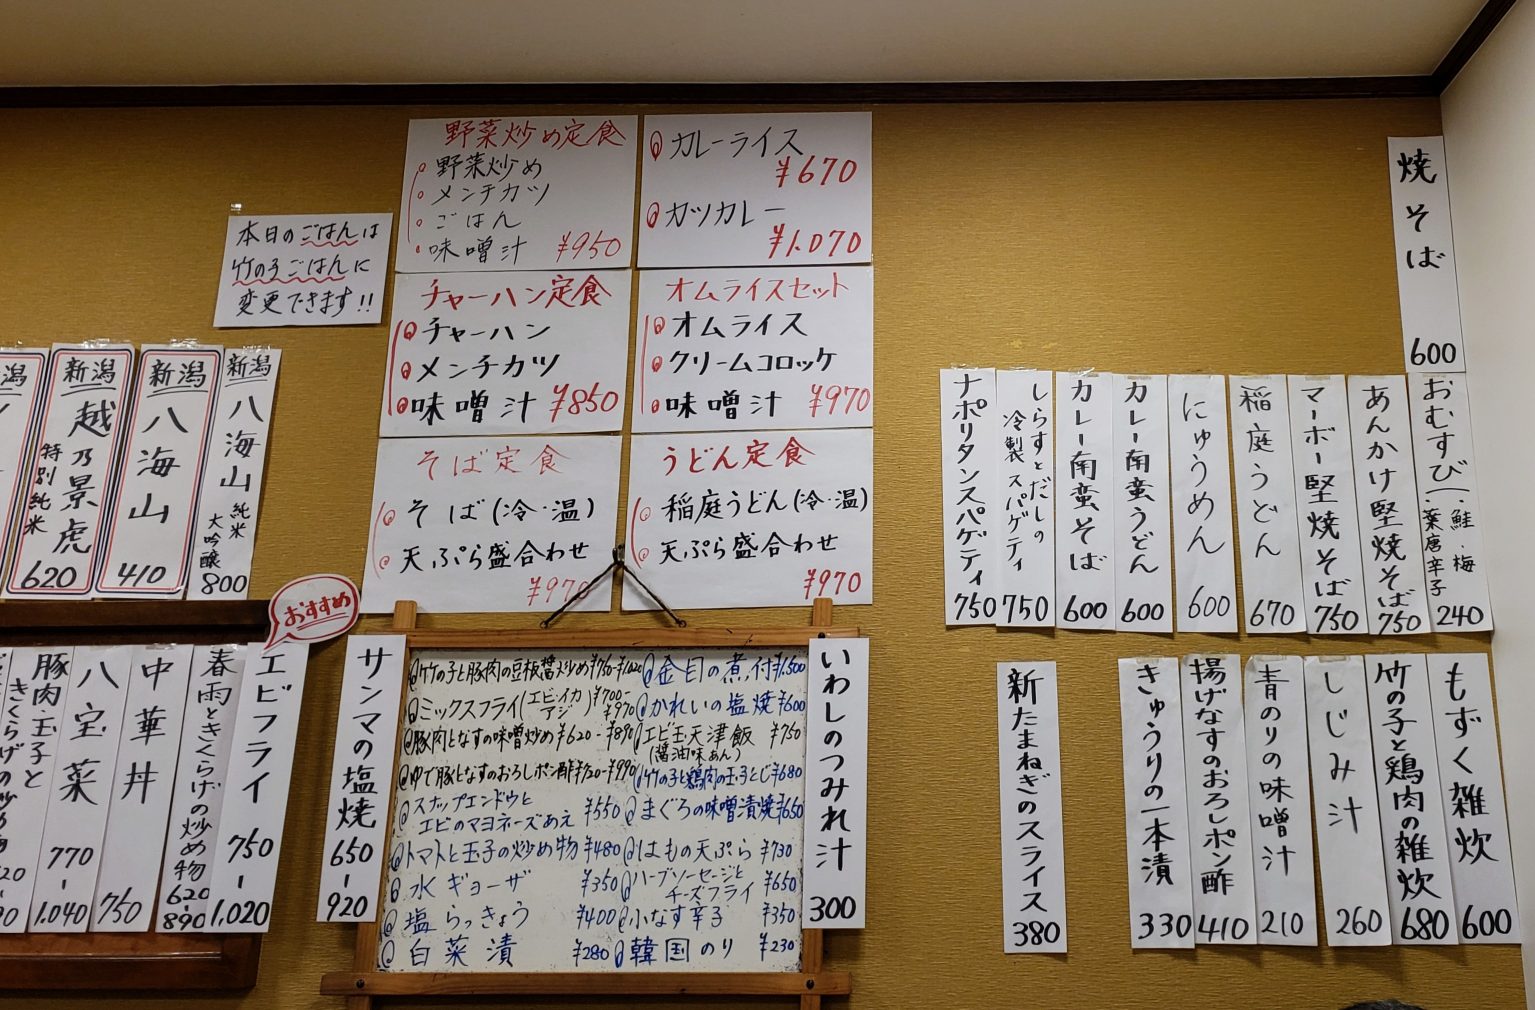 本日のごはんは
竹の子ごはんに
変更できます!!
野菜炒め定食
野菜炒め
メンチカツ
ごはん
味噌汁 ¥950
カレーライス
¥670
カツカレー
¥1.070
チャーハン定食
チャーハン
メンチカツ
味噌汁 ¥850
オムライスセット
オムライス
クリームコロッケ
味噌汁 ¥970
そば定食
そば(冷・温)
天ぷら盛合わせ
¥970
うどん定食
稲庭うどん(冷・温)
天ぷら盛合わせ
¥970
新潟
越乃景虎
特別純米
620
新潟
八海山
410
新潟
八海山
純米
大吟醸
800
おすすめ
エビフライ
750-
1,020
春雨ときくらげの炒め物
620-
890
中華丼
750
八宝菜
770-
1.040
豚肉玉子と
きくらげの炒め物
サンマの塩焼
650-
920
竹の子と豚肉の豆板醤炒め
ミックスフライ(エビ・イカ
アジ) ¥700-
¥970
豚肉となすの味噌炒め ¥620-¥890
ゆで豚となすのおろしポン酢 ¥720-¥990
スナップエンドウと
エビのマヨネーズあえ ¥550
トマトと玉子の炒め物 ¥480
水ギョーザ ¥350
塩らっきょう ¥400
白菜漬 ¥280
金目の煮付 ¥1.500
かれいの塩焼 ¥600
エビ玉天津飯 ¥750
(醤油味あん)
竹の子と鶏肉の玉子とじ ¥680
まぐろの味噌漬焼 ¥650
はもの天ぷら ¥730
ハーブソーセージと
チーズフライ ¥650
小なす辛子 ¥350
韓国のり ¥230
いわしのつみれ汁
300
焼そば
600
おむすび
鮭・梅
葉唐辛子
240
あんかけ堅焼そば
750
マーボー堅焼そば
750
稲庭うどん
670
にゅうめん
600
カレー南蛮うどん
600
カレー南蛮そば
600
しらすとだしの
冷製スパゲティ
750
ナポリタンスパゲティ
750
もずく雑炊
600
竹の子と鶏肉の雑炊
680
しじみ汁
260
青のりの味噌汁
210
揚げなすのおろしポン酢
410
きゅうりの一本漬
330
新たまねぎのスライス
380